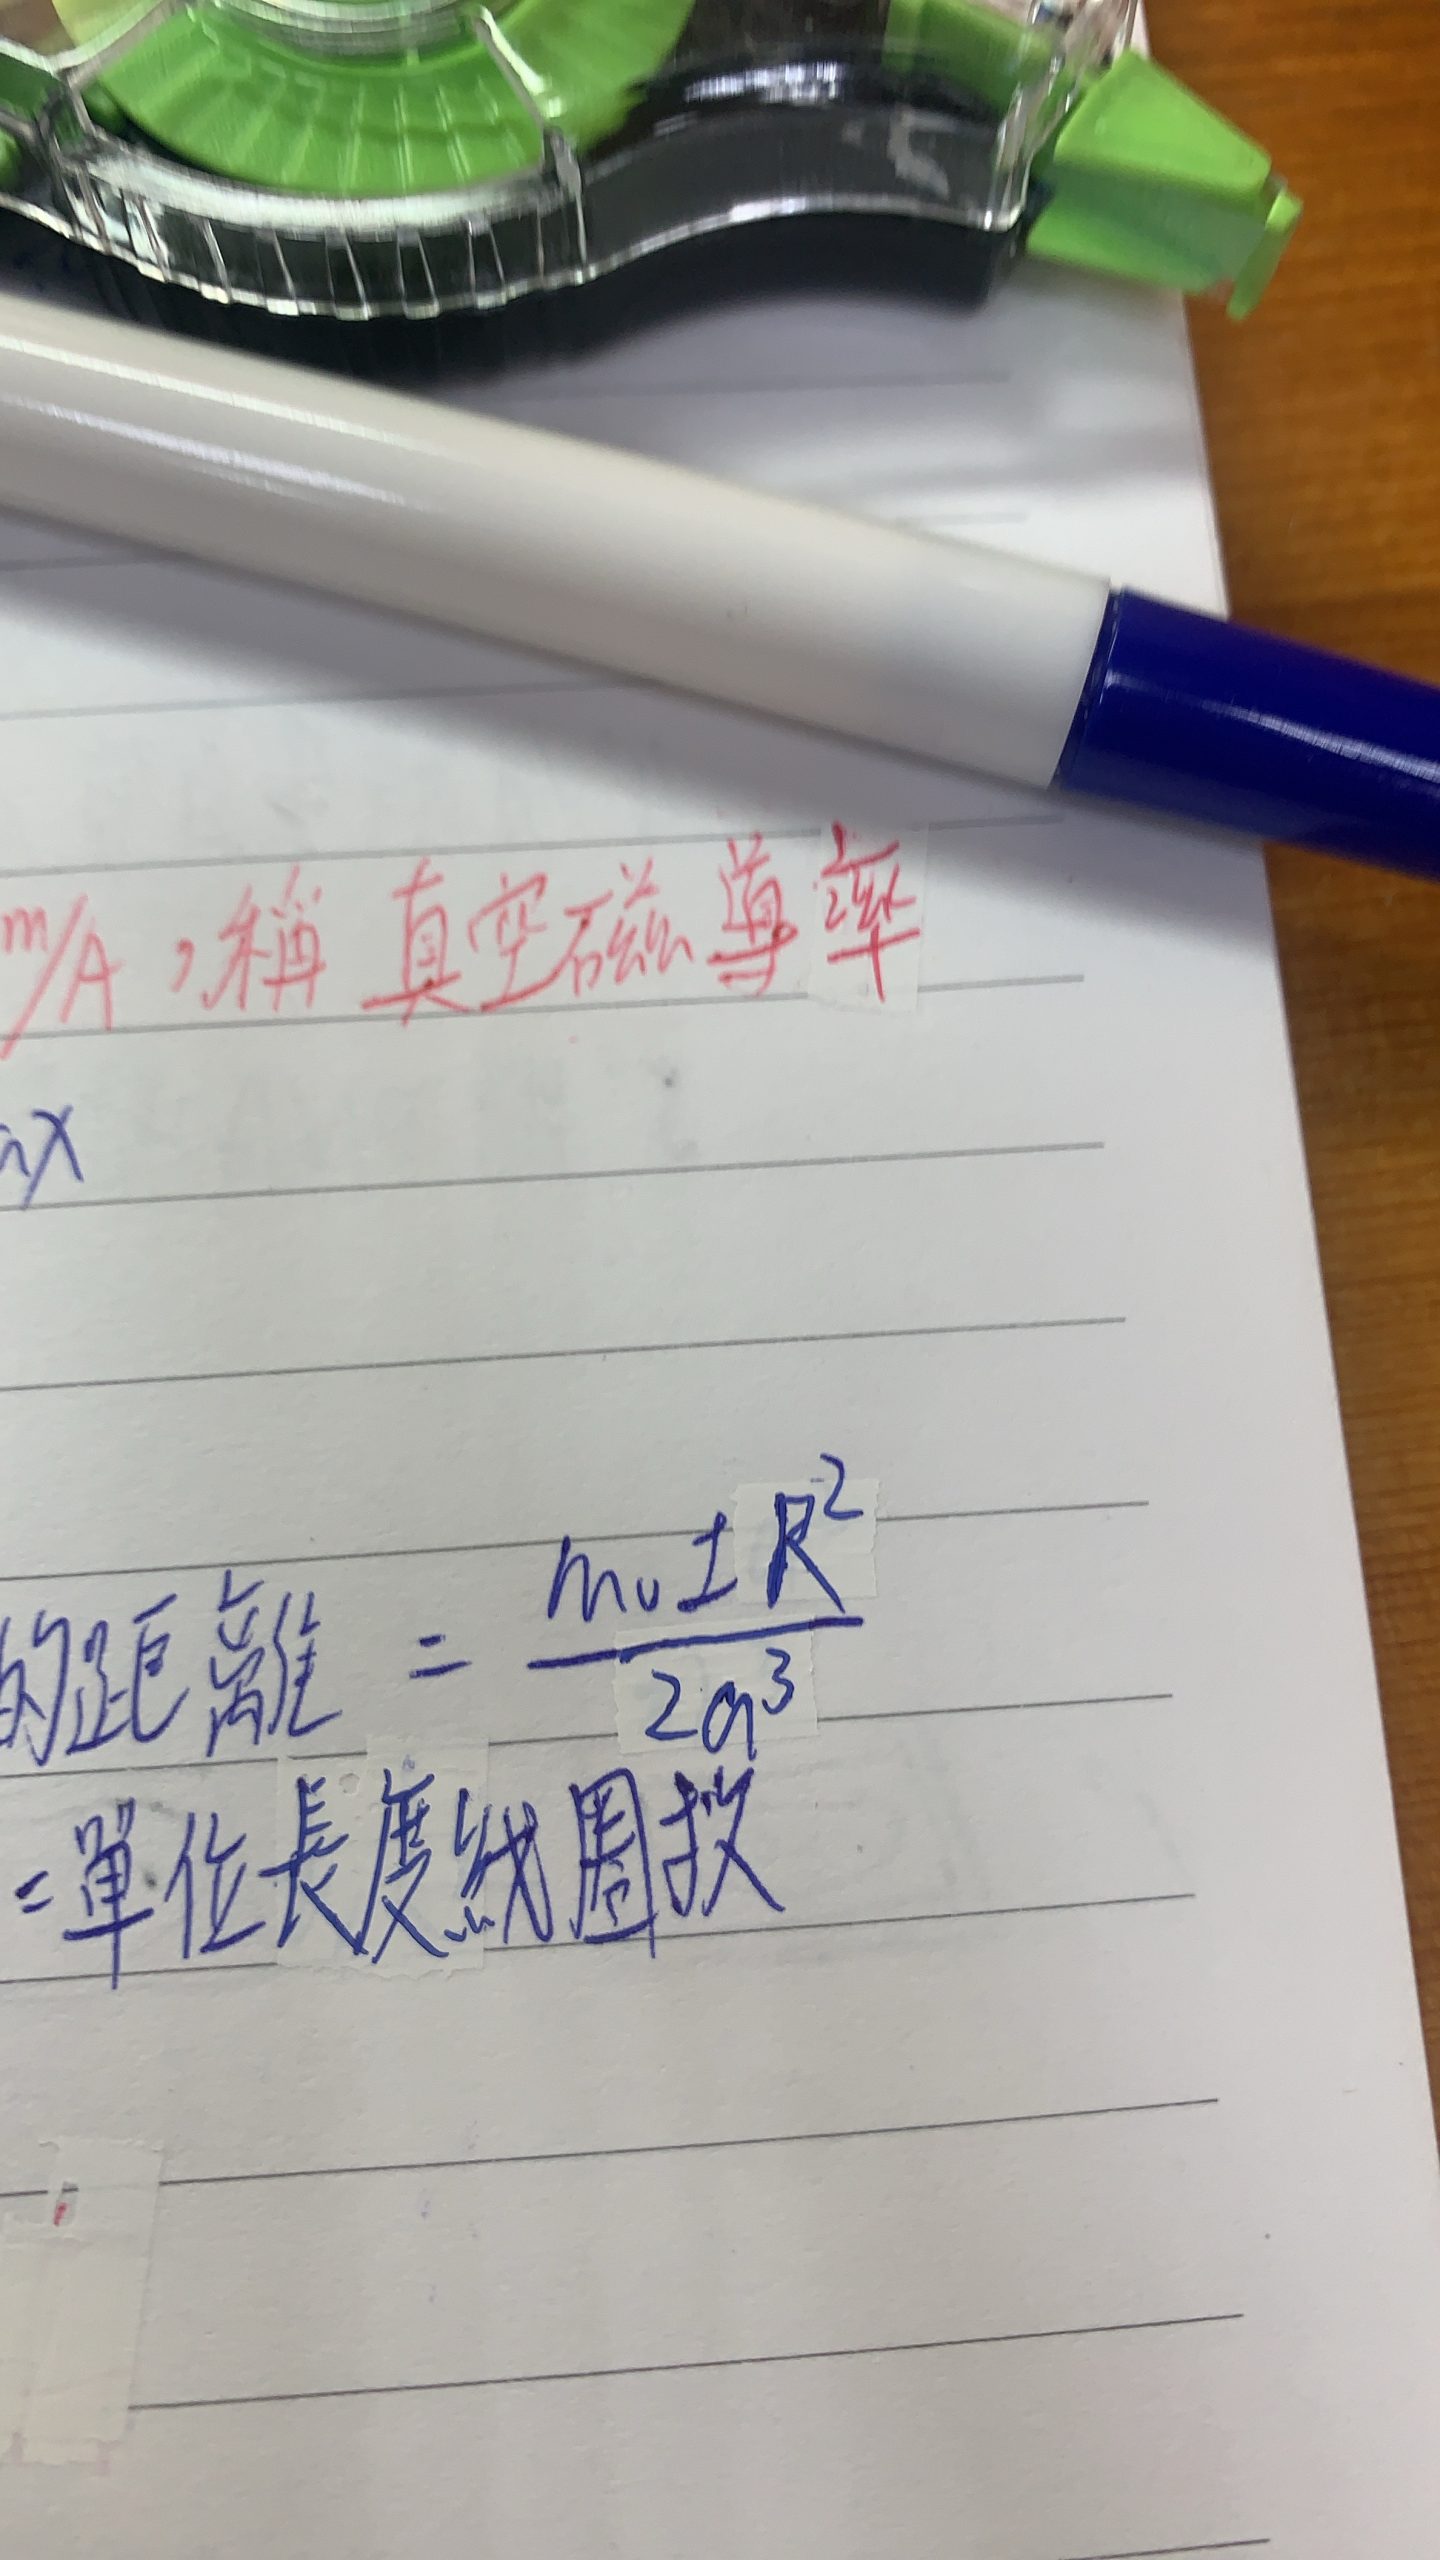 m/A，稱真空磁導率
nx
的距離 = mu I R² / 2a³
=單位長度線圈投